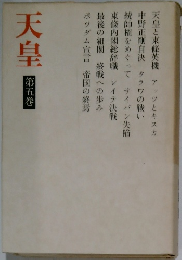 天皇と東條英機　アッツとキスカ
中野正剛自決　タラワの戦い
統帥権をめぐって　サイパン失陥
東條内閣総辞職　レイテ決戦
最後の組閣　終戦への歩み
ポツダム宣言　帝国の終焉
天皇
第五巻